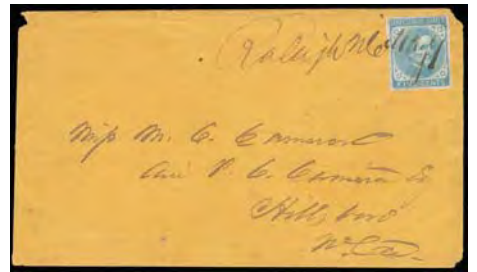 Raleigh NC May 11
FIVE CENTS
Miss M. C. Cameron
Care P. C. Cameron Esq
Hillsboro
No. Ca.